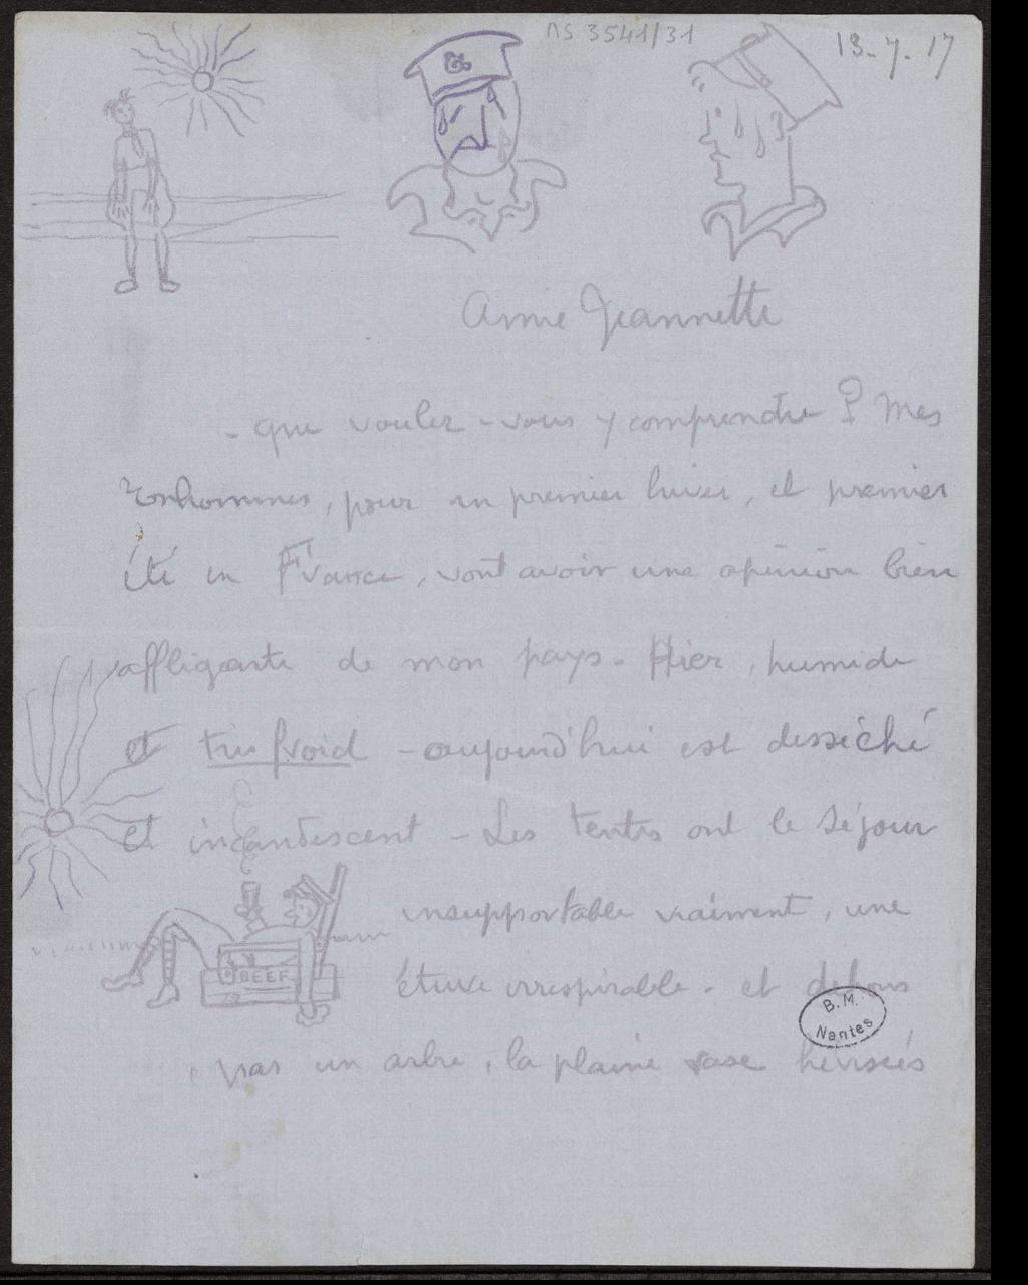 MS 3541/31
13-7.17
Amie Jeannette
- que voulez-vous y comprendre ? Mes
bonhommes, pour un premier hiver, et premier
été en France, vont avoir une opinion bien
affligeante de mon pays. Hier, humide
et très froid - aujourd'hui est desséché
et incandescent - Les tentes ont le séjour
insupportable vraiment, une
BEEF
étuve irrespirable. et dehors
B.M.
Nantes
pas un arbre, la plaine rase